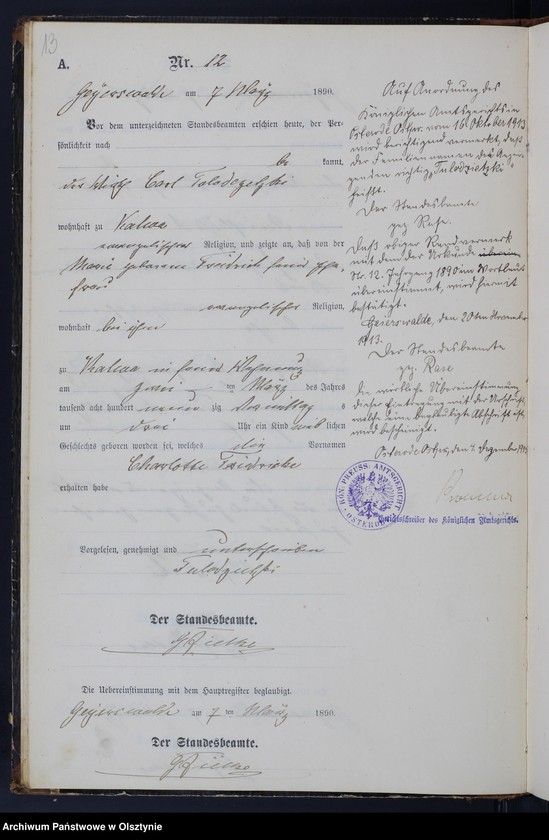 13
A.
Nr. 12
Geyerswalde am 7 März 1890.
Vor dem unterzeichneten Standesbeamten erschien heute, der Per-
sönlichkeit nach
be kannt,
der Carl
wohnhaft zu
evangelischer Religion, und zeigte an, daß von der
Marie geborenen Friedrich seine Ehe-
frau
evangelischer Religion,
wohnhaft bei ihm
zu in seiner Wohnung
am zwei ten März des Jahres
tausend acht hundert neun zig Vormittag s
um drei Uhr ein Kind weib lichen
Geschlechts geboren worden sei, welches die Vornamen
Charlotte Friedricke
erhalten habe
Vorgelesen, genehmigt und unterschrieben
Der Standesbeamte.
Die Uebereinstimmung mit dem Hauptregister beglaubigt.
Geyerswalde am 7 ten März 1890.
Der Standesbeamte.
Auf Anordnung des
Königlichen Amtsgerichts in
Osterode Ostpr. vom 16. Oktober 1913
wird berichtigend vermerkt, daß
der Familienname des Anzei-
genden richtig "Tulodzietzki"
heißt.
Der Standesbeamte
gez. Rase.
Daß obiger Randvermerk
mit dem der Urkunde
Nr. 12. Jahrgang 1890 im Wortlaut
übereinstimmt, wird hiermit
bestätigt.
Geierswalde, den 20ten November
1913.
Der Standesbeamte
gez. Rase
Die wirkliche Übereinstimmung
dieser Eintragung mit der Vorschrift,
welche eine beglaubigte Abschrift ist,
wird bescheinigt.
Osterode Ostpr., den Dezember 1913
KÖN. PREUSS. AMTSGERICHT
OSTERODE
Gerichtsschreiber des Königlichen Amtsgerichts.
Archiwum Państwowe w Olsztynie